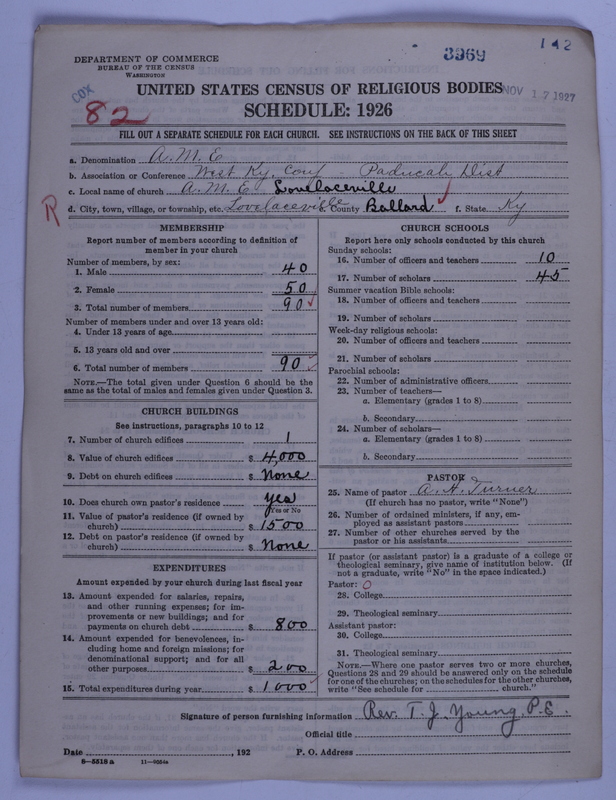 142
3969
DEPARTMENT OF COMMERCE
BUREAU OF THE CENSUS
WASHINGTON
COX
82
NOV 17 1927
UNITED STATES CENSUS OF RELIGIOUS BODIES
SCHEDULE: 1926
FILL OUT A SEPARATE SCHEDULE FOR EACH CHURCH. SEE INSTRUCTIONS ON THE BACK OF THIS SHEET
a. Denomination A.M.E
b. Association or Conference West Ky. Conf - Paducah Dist
c. Local name of church A.M.E Lovelaceville
R
d. City, town, village, or township, etc. Lovelaceville e. County Ballard f. State Ky
MEMBERSHIP
Report number of members according to definition of
member in your church
Number of members, by sex:
1. Male 40
2. Female 50
3. Total number of members 90
Number of members under and over 13 years old:
4. Under 13 years of age
5. 13 years old and over
6. Total number of members 90
NOTE.—The total given under Question 6 should be the
same as the total of males and females given under Question 3.
CHURCH BUILDINGS
See instructions, paragraphs 10 to 12
7. Number of church edifices 1
8. Value of church edifices $ 4,000
9. Debt on church edifices $ None
10. Does church own pastor's residence yes
Yes or No
11. Value of pastor's residence (if owned by
church) $ 1500
12. Debt on pastor's residence (if owned by
church) $ None
EXPENDITURES
Amount expended by your church during last fiscal year
13. Amount expended for salaries, repairs,
and other running expenses; for im-
provements or new buildings; and for
payments on church debt $ 800
14. Amount expended for benevolences, in-
cluding home and foreign missions; for
denominational support; and for all
other purposes $ 200
15. Total expenditures during year $ 1000
CHURCH SCHOOLS
Report here only schools conducted by this church
Sunday schools:
16. Number of officers and teachers 10
17. Number of scholars 45
Summer vacation Bible schools:
18. Number of officers and teachers
19. Number of scholars
Week-day religious schools:
20. Number of officers and teachers
21. Number of scholars
Parochial schools:
22. Number of administrative officers
23. Number of teachers—
a. Elementary (grades 1 to 8)
b. Secondary
24. Number of scholars—
a. Elementary (grades 1 to 8)
b. Secondary
PASTOR
25. Name of pastor A. H. Turner
(If church has no pastor, write "None")
26. Number of ordained ministers, if any, em-
ployed as assistant pastors
27. Number of other churches served by the
pastor or his assistants
If pastor (or assistant pastor) is a graduate of a college or
theological seminary, give name of institution below. (If
not a graduate, write "No" in the space indicated.)
Pastor: O
28. College
29. Theological seminary
Assistant pastor:
30. College
31. Theological seminary
NOTE.—Where one pastor serves two or more churches,
Questions 28 and 29 should be answered only on the schedule
for one of the churches; on the schedules for the other churches,
write "See schedule for church."
Signature of person furnishing information Rev. T. J. Young, P.E.
Official title
Date , 192 P. O. Address
8—5518 a 11—9554a